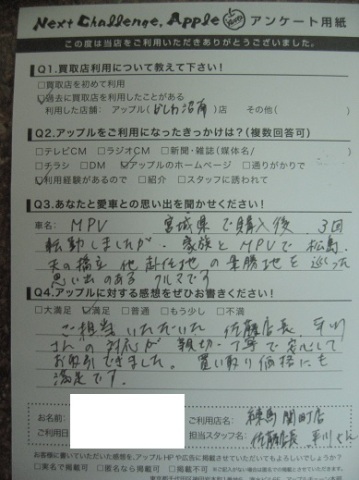 Next Challenge, Apple アンケート用紙
この度は当店をご利用いただきありがとうございました。
Q1.買取店利用について教えて下さい!
□買取店を初めて利用
☑過去に買取店を利用したことがある
利用した店舗: アップル( )店 その他( )
Q2.アップルをご利用になったきっかけは?(複数回答可)
□テレビCM □ラジオCM □新聞・雑誌(媒体名/ )
□チラシ □DM ☑アップルのホームページ □通りがかりで
☑利用経験があるので □紹介 □スタッフに誘われて
Q3.あなたと愛車との思い出を聞かせください!
車名: MPV 宮城県で購入後、3回
転勤しましたが、家族とMPVで松島、
天の橋立他赴任地の景勝地を巡った
思い出のあるクルマです
Q4.アップルに対する感想をぜひお書きください!
□大満足 ☑満足 □普通 □もう少し □不満
ご担当いただいた佐藤店長、平川
さんの対応が親切・丁寧で安心して
お取引できました。買い取り価格にも
満足です。
お名前: ご利用店名: 練馬関町店
ご利用日 担当スタッフ名: 佐藤店長、平川さん
お客様に書いていただいた感想を、アップルHPや広告に掲載させていただいてもよろしいでしょうか?
□実名で掲載可 □匿名なら掲載可 □掲載不可